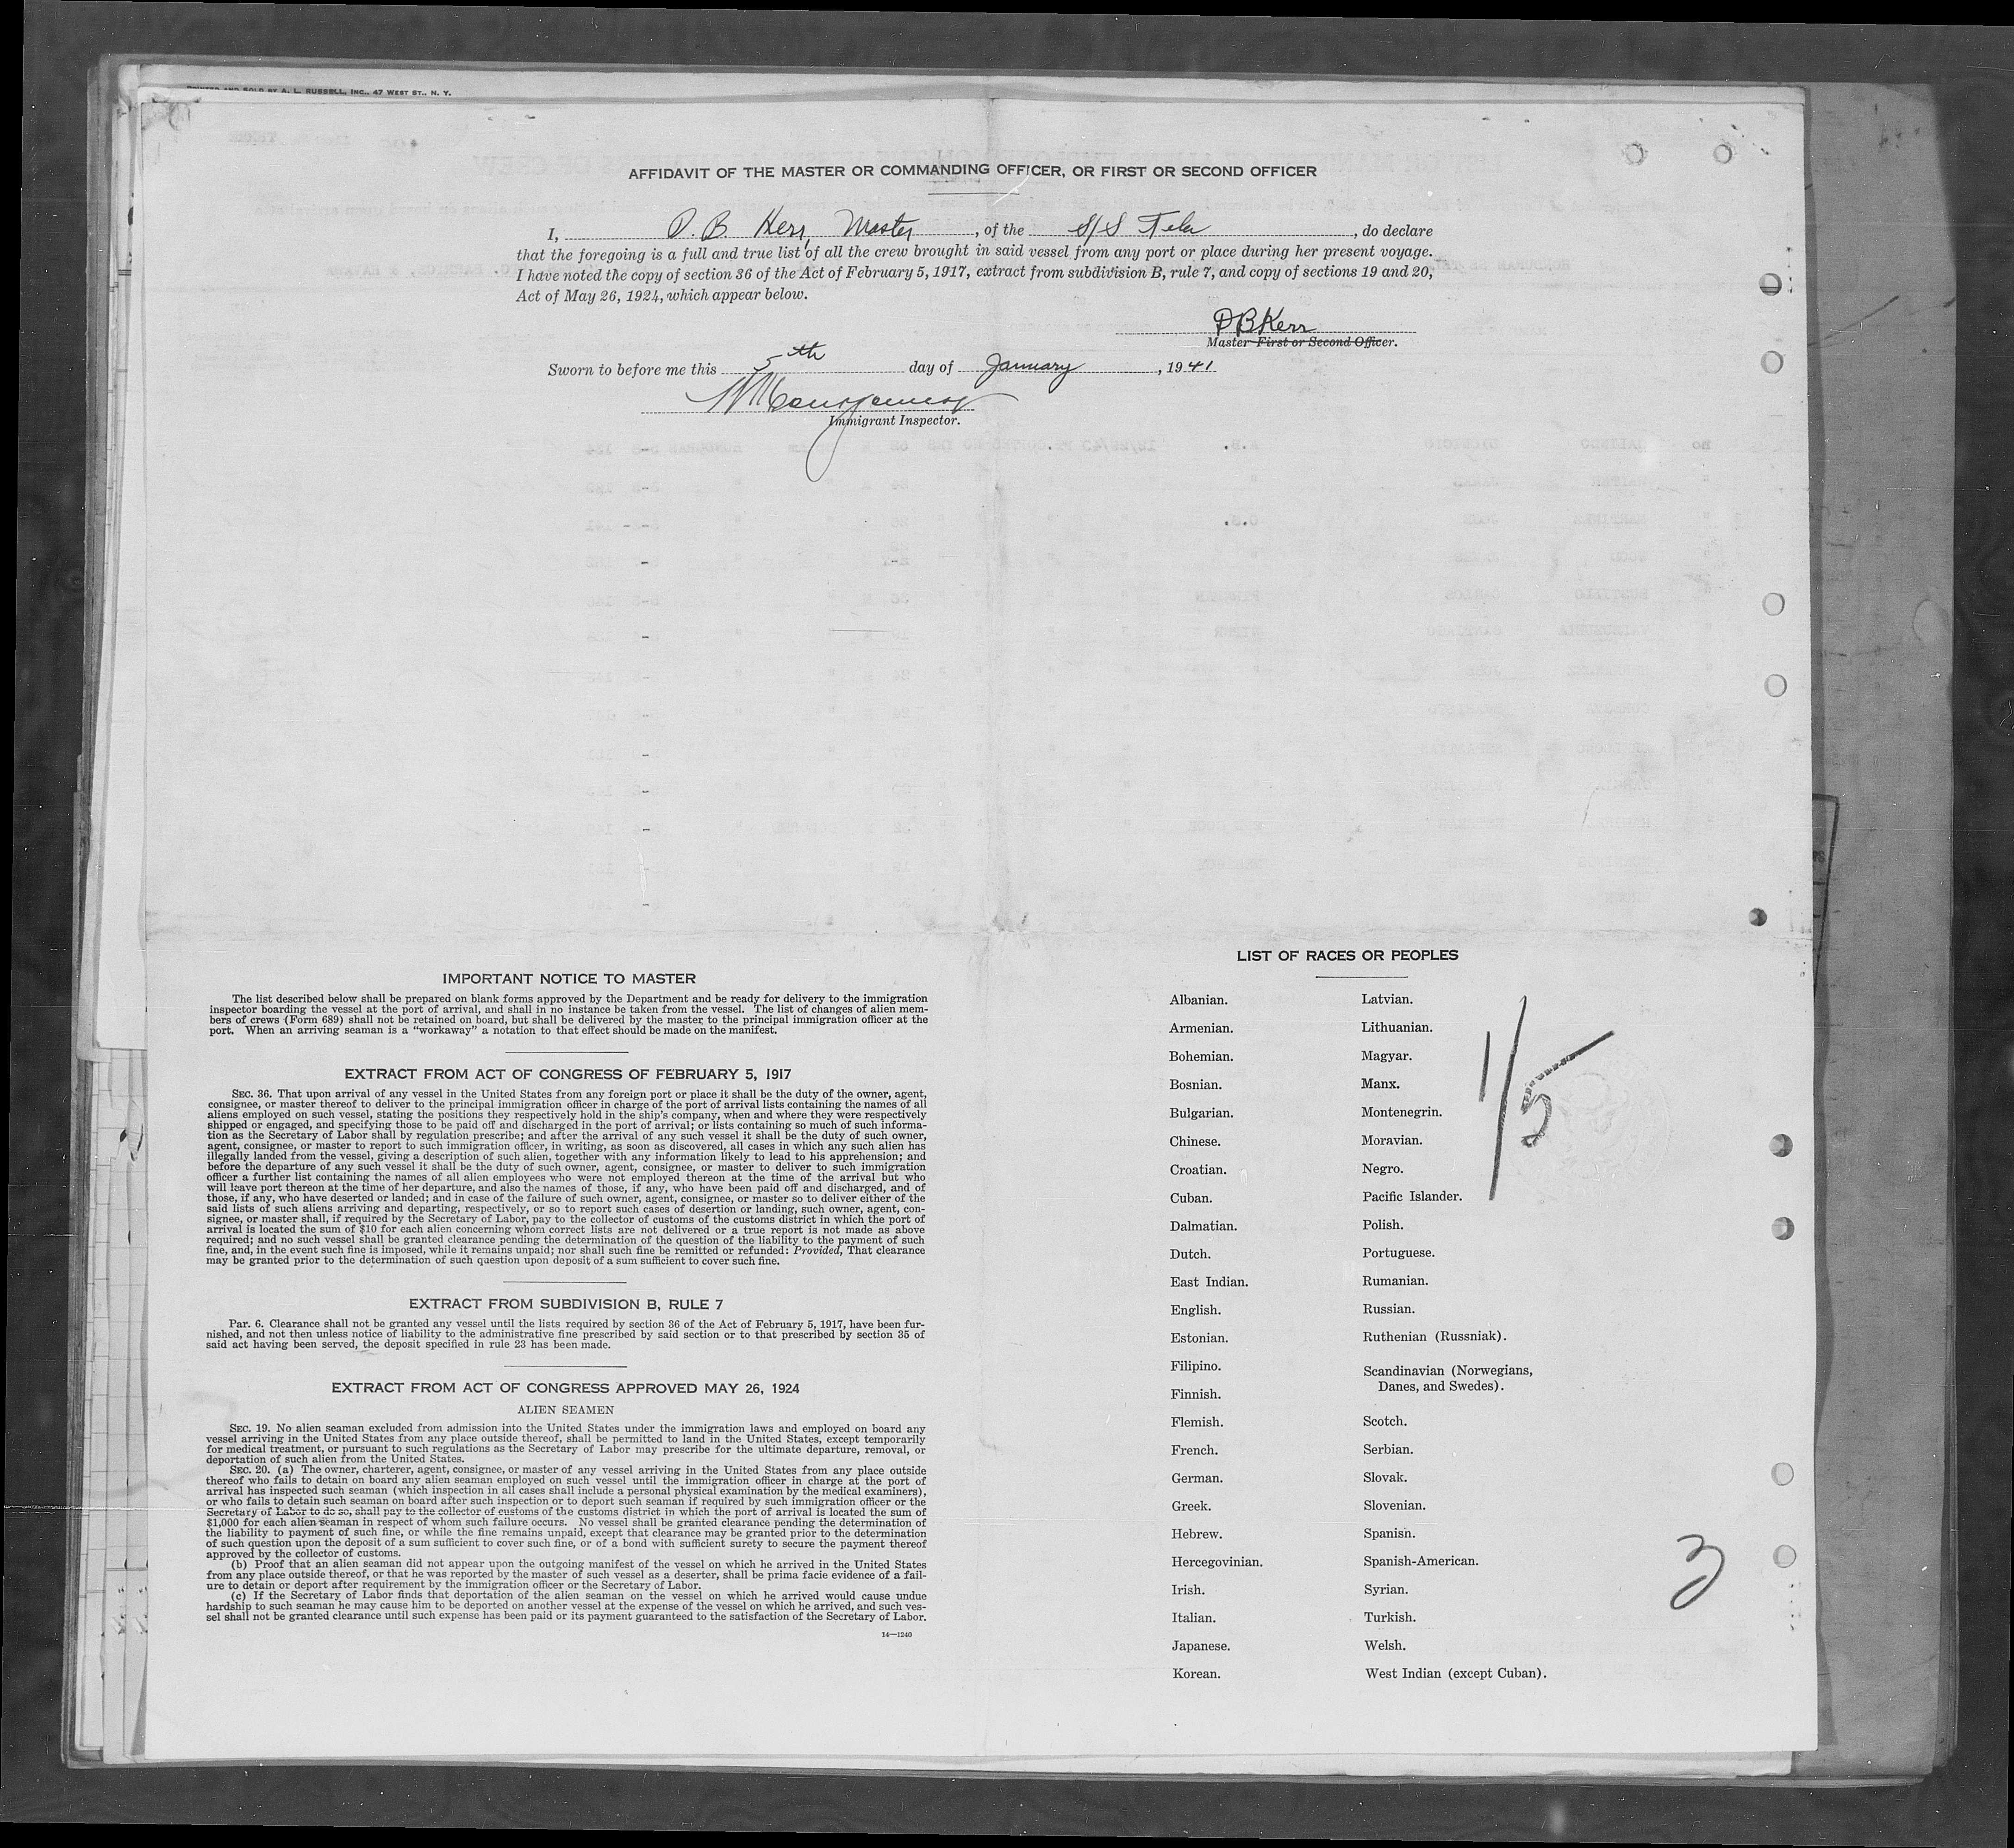 PRINTED AND SOLD BY A. L. RUSSELL, INC., 47 WEST ST., N. Y.
AFFIDAVIT OF THE MASTER OR COMMANDING OFFICER, OR FIRST OR SECOND OFFICER
I, D. B. Kerr, Master, of the S/S Tela, do declare
that the foregoing is a full and true list of all the crew brought in said vessel from any port or place during her present voyage.
I have noted the copy of section 36 of the Act of February 5, 1917, extract from subdivision B, rule 7, and copy of sections 19 and 20,
Act of May 26, 1924, which appear below.
DBKerr
Master First or Second Officer.
Sworn to before me this 5th day of January, 1941
Immigrant Inspector.
IMPORTANT NOTICE TO MASTER
The list described below shall be prepared on blank forms approved by the Department and be ready for delivery to the immigration
inspector boarding the vessel at the port of arrival, and shall in no instance be taken from the vessel. The list of changes of alien mem-
bers of crews (Form 689) shall not be retained on board, but shall be delivered by the master to the principal immigration officer at the
port. When an arriving seaman is a "workaway" a notation to that effect should be made on the manifest.
EXTRACT FROM ACT OF CONGRESS OF FEBRUARY 5, 1917
SEC. 36. That upon arrival of any vessel in the United States from any foreign port or place it shall be the duty of the owner, agent,
consignee, or master thereof to deliver to the principal immigration officer in charge of the port of arrival lists containing the names of all
aliens employed on such vessel, stating the positions they respectively hold in the ship's company, when and where they were respectively
shipped or engaged, and specifying those to be paid off and discharged in the port of arrival; or lists containing so much of such informa-
tion as the Secretary of Labor shall by regulation prescribe; and after the arrival of any such vessel it shall be the duty of such owner,
agent, consignee, or master to report to such immigration officer, in writing, as soon as discovered, all cases in which any such alien has
illegally landed from the vessel, giving a description of such alien, together with any information likely to lead to his apprehension; and
before the departure of any such vessel it shall be the duty of such owner, agent, consignee, or master to deliver to such immigration
officer a further list containing the names of all alien employees who were not employed thereon at the time of the arrival but who
will leave port thereon at the time of her departure, and also the names of those, if any, who have been paid off and discharged, and of
those, if any, who have deserted or landed; and in case of the failure of such owner, agent, consignee, or master so to deliver either of the
said lists of such aliens arriving and departing, respectively, or so to report such cases of desertion or landing, such owner, agent, con-
signee, or master shall, if required by the Secretary of Labor, pay to the collector of customs of the customs district in which the port of
arrival is located the sum of $10 for each alien concerning whom correct lists are not delivered or a true report is not made as above
required; and no such vessel shall be granted clearance pending the determination of the question of the liability to the payment of such
fine, and, in the event such fine is imposed, while it remains unpaid; nor shall such fine be remitted or refunded: Provided, That clearance
may be granted prior to the determination of such question upon deposit of a sum sufficient to cover such fine.
EXTRACT FROM SUBDIVISION B, RULE 7
Par. 6. Clearance shall not be granted any vessel until the lists required by section 36 of the Act of February 5, 1917, have been fur-
nished, and not then unless notice of liability to the administrative fine prescribed by said section or to that prescribed by section 35 of
said act having been served, the deposit specified in rule 23 has been made.
EXTRACT FROM ACT OF CONGRESS APPROVED MAY 26, 1924
ALIEN SEAMEN
SEC. 19. No alien seaman excluded from admission into the United States under the immigration laws and employed on board any
vessel arriving in the United States from any place outside thereof, shall be permitted to land in the United States, except temporarily
for medical treatment, or pursuant to such regulations as the Secretary of Labor may prescribe for the ultimate departure, removal, or
deportation of such alien from the United States.
SEC. 20. (a) The owner, charterer, agent, consignee, or master of any vessel arriving in the United States from any place outside
thereof who fails to detain on board any alien seaman employed on such vessel until the immigration officer in charge at the port of
arrival has inspected such seaman (which inspection in all cases shall include a personal physical examination by the medical examiners),
or who fails to detain such seaman on board after such inspection or to deport such seaman if required by such immigration officer or the
Secretary of Labor to do so, shall pay to the collector of customs of the customs district in which the port of arrival is located the sum of
$1,000 for each alien seaman in respect of whom such failure occurs. No vessel shall be granted clearance pending the determination of
the liability to payment of such fine, or while the fine remains unpaid, except that clearance may be granted prior to the determination
of such question upon the deposit of a sum sufficient to cover such fine, or of a bond with sufficient surety to secure the payment thereof
approved by the collector of customs.
(b) Proof that an alien seaman did not appear upon the outgoing manifest of the vessel on which he arrived in the United States
from any place outside thereof, or that he was reported by the master of such vessel as a deserter, shall be prima facie evidence of a fail-
ure to detain or deport after requirement by the immigration officer or the Secretary of Labor.
(c) If the Secretary of Labor finds that deportation of the alien seaman on the vessel on which he arrived would cause undue
hardship to such seaman he may cause him to be deported on another vessel at the expense of the vessel on which he arrived, and such ves-
sel shall not be granted clearance until such expense has been paid or its payment guaranteed to the satisfaction of the Secretary of Labor.
14—1240
LIST OF RACES OR PEOPLES
Albanian.
Armenian.
Bohemian.
Bosnian.
Bulgarian.
Chinese.
Croatian.
Cuban.
Dalmatian.
Dutch.
East Indian.
English.
Estonian.
Filipino.
Finnish.
Flemish.
French.
German.
Greek.
Hebrew.
Hercegovinian.
Irish.
Italian.
Japanese.
Korean.
Latvian.
Lithuanian.
Magyar.
Manx.
Montenegrin.
Moravian.
Negro.
Pacific Islander.
Polish.
Portuguese.
Rumanian.
Russian.
Ruthenian (Russniak).
Scandinavian (Norwegians,
Danes, and Swedes).
Scotch.
Serbian.
Slovak.
Slovenian.
Spanish.
Spanish-American.
Syrian.
Turkish.
Welsh.
West Indian (except Cuban).
1/5
3